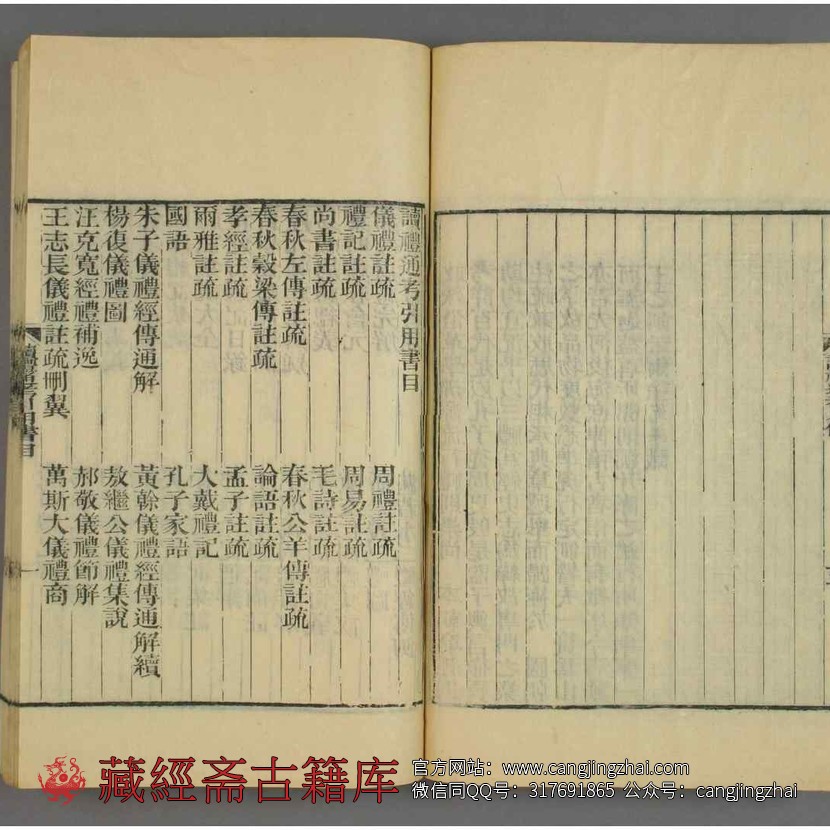 讀禮通考引用書目
儀禮註疏　周禮註疏
禮記註疏　周易註疏
尚書註疏　毛詩註疏
春秋左傳註疏　春秋公羊傳註疏
春秋穀梁傳註疏　論語註疏
孝經註疏　孟子註疏
爾雅註疏　大戴禮記
國語　孔子家語
朱子儀禮經傳通解　黃榦儀禮經傳通解續
楊復儀禮圖　敖繼公儀禮集說
汪克寬經禮補逸　郝敬儀禮節解
王志長儀禮註疏刪翼　萬斯大儀禮商
讀禮通考引用書目　一
藏經斋古籍库
官方网站：www.cangjingzhai.com
微信同QQ号：317691865 公众号：cangjingzhai